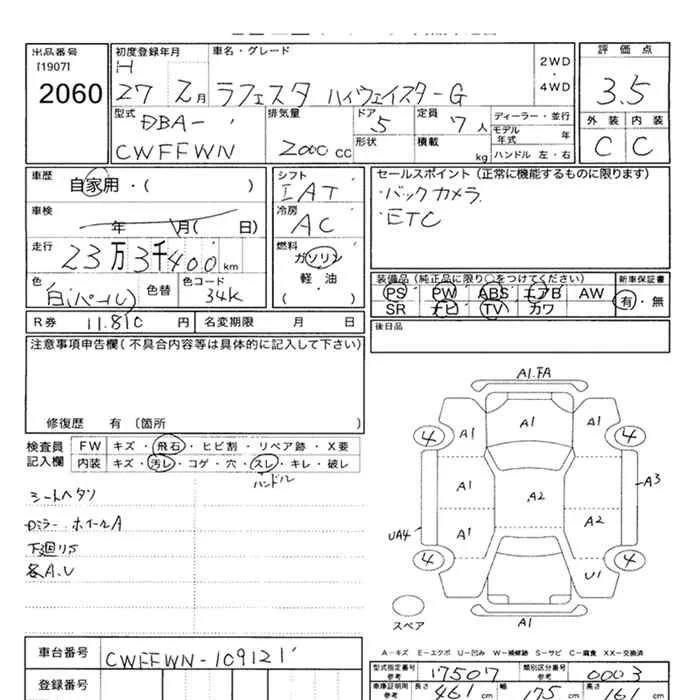 出品番号
[1907]
2060
初度登録年月
H
27 2月
車名・グレード
ラフェスタ ハイウェイスターG
2WD
・
4WD
評価点
3.5
外装 内装
C C
型式
DBA-
CWFFWN
排気量
2000 cc
ドア
5
形状
定員
7人
積載
kg
ディーラー・並行
モデル年式 年
ハンドル 左・右
車歴
自家用・( )
車検
年 月( 日)
走行
23万3千400km
色
白(パール)
色替
色コード
34K
シフト
IAT
冷房
AC
燃料
ガソリン
軽・油
( )
セールスポイント(正常に機能するものに限ります)
・バックカメラ
・ETC
装備品(純正品に限り○をつけてください)
PS PW ABS エアB AW
SR ナビ TV カワ
新車保証書
有・無
後日品
R券 11.810 円
名変期限 月 日
注意事項申告欄(不具合内容等は具体的に記入して下さい)
修復歴 有 〔箇所 〕
検査員
記入欄
FW キズ・飛石・ヒビ割・リペア跡・X要
内装 キズ・汚レ・コゲ・穴・スレ・キレ・破レ
ハンドル
シートヘタリ
Dミラー ホイールA
下廻りS
各A.U
A1.FA
4 A1 A1 A1 4
A1 A2 A3
UA4 A1 A2
4 U1 4
スペア
A1
A-キズ E-エクボ U-凹み W-補修跡 S-サビ C-腐食 XX-交換済
車台番号
CWFFWN-109121
登録番号
型式指定番号
参考
17507
類別区分番号
参考
0003
車庫証明用
参考
長さ
461 cm
幅
175 cm
高さ
161 cm